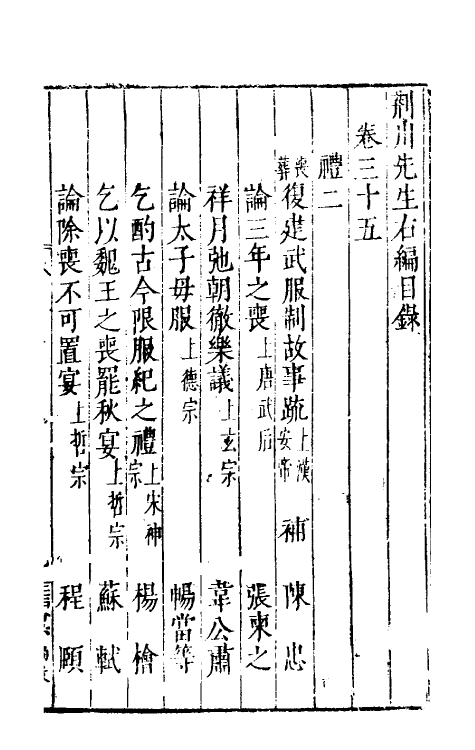 荆川先生右編目錄
卷三十五
禮二
喪葬復建武服制故事疏上漢安帝 補 陳忠
論三年之喪上唐武后 張柬之
祥月弛朝徹樂議上玄宗 韋公肅
論太子毋服上德宗 暢當等
乞酌古今限服紀之禮上宋神宗 楊檜
乞以魏王之喪罷秋宴上哲宗 蘇軾
論除喪不可置宴上哲宗 程頤